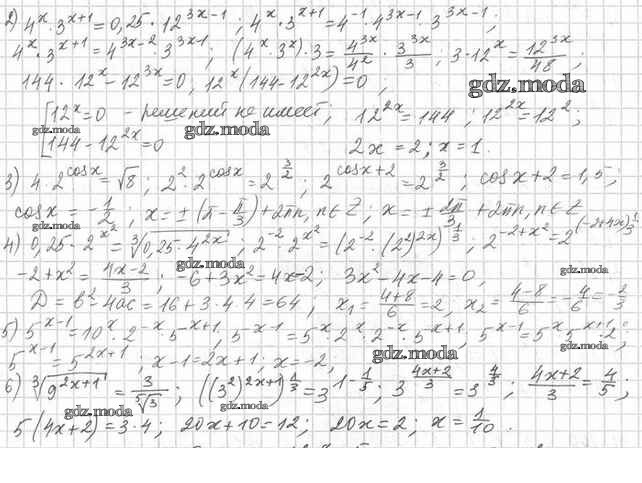 2) 4^x · 3^{x+1} = 0,25 · 12^{3x-1} ; 4^x · 3^{x+1} = 4^{-1} · 4^{3x-1} · 3^{3x-1} ;
4^x · 3^{x+1} = 4^{3x-2} · 3^{3x-1} ; (4^x · 3^x) · 3 = 4^{3x}/4^2 · 3^{3x}/3 ; 3 · 12^x = 12^{3x}/48 ;
144 · 12^x - 12^{3x} = 0 , 12^x (144 - 12^{2x}) = 0 ;
gdz.moda
[ 12^x = 0 - решений не имеет, 12^{2x} = 144 ; 12^{2x} = 12^2 ;
gdz.moda gdz.moda gdz.moda
[ 144 - 12^{2x} = 0 2x = 2 ; x = 1 .
3) 4 · 2^{cosx} = √8 ; 2^2 · 2^{cosx} = 2^{3/2} ; 2^{cosx+2} = 2^{3/2} ; cosx + 2 = 1,5 ;
cosx = -1/2 ; x = ± (π - π/3) + 2πn, n ∈ Z ; x = ± 2π/3 + 2πn, n ∈ Z
4) 0,25 · 2^{x^2} = ∛(0,25 · 4^{2x}) ; 2^{-2} · 2^{x^2} = (2^{-2} · (2^2)^{2x})^{1/3} ; 2^{-2+x^2} = 2^{(-2+4x) 1/3} ;
gdz.moda gdz.moda
-2 + x^2 = (4x-2)/3 ; -6 + 3x^2 = 4x-2 ; 3x^2 - 4x - 4 = 0 ,
D = b^2 - 4ac = 16 + 3 · 4 · 4 = 64 ; x_1 = (4+8)/6 = 2, x_2 = (4-8)/6 = -4/6 = -2/3
5) 5^{x-1} = 10^x · 2^{-x} · 5^{x+1} , 5^{x-1} = 5^x · 2^x · 2^{-x} · 5^{x+1} , 5^{x-1} = 5^x 5^{x+1} · 2^0 ;
gdz.moda gdz.moda
5^{x-1} = 5^{2x+1} ; x-1 = 2x+1 ; x = -2 ,
6) ∛(9^{2x+1}) = 3/⁵√3 ; ((3^2)^{2x+1})^{1/3} = 3^{1-1/5} ; 3^{(4x+2)/3} = 3^{4/5} ; (4x+2)/3 = 4/5 ;
gdz.moda gdz.moda
5(4x+2) = 3 · 4 ; 20x + 10 = 12 ; 20x = 2 ; x = 1/10 .